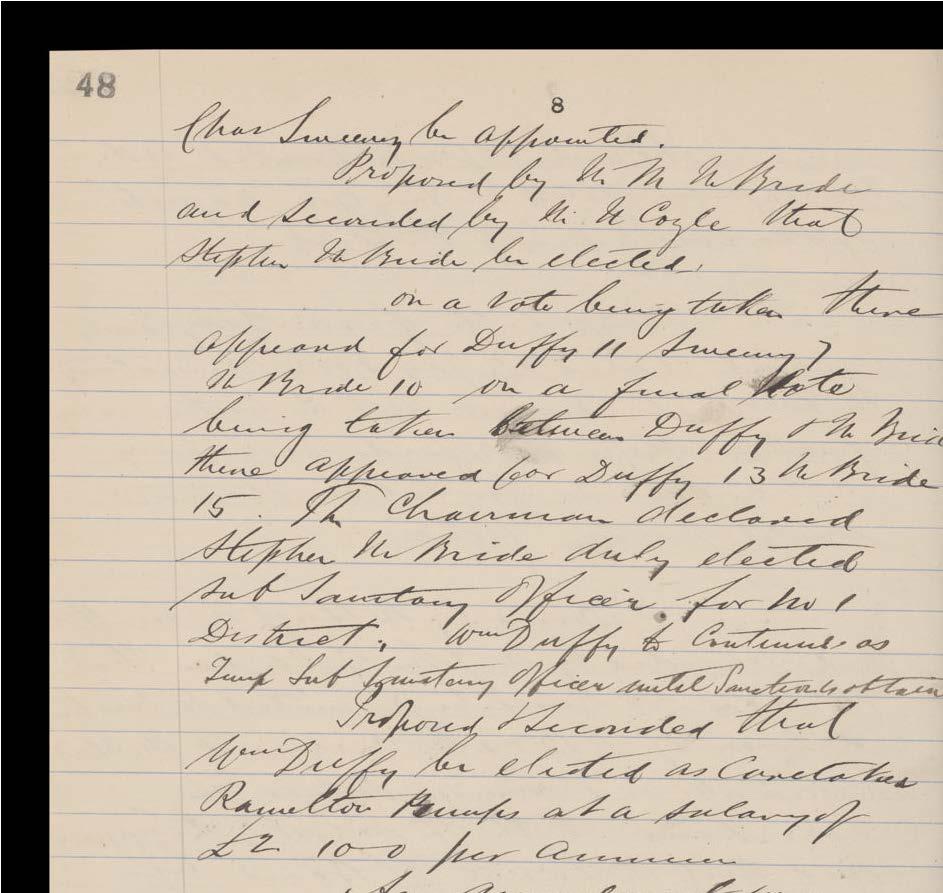 48
8
Chas Sweeney be appointed.
Proposed by Mr M McBride
and seconded by Mr McCoyle that
Stephen McBride be elected.
on a vote being taken there
appeared for Duffy 11 Sweeney 7
McBride 10 on a final vote
being taken between Duffy & McBrid
there appeared for Duffy 13 McBride
15. The Chairman declared
Stephen McBride duly elected
Sub Sanitary Officer for No 1
District. Wm Duffy to Continue as
Temp Sub Sanitary Officer until Sanction is obtain
Proposed & Seconded that
Wm Duffy be elected as Caretaker
Ramelton Pumps at a salary of
£2 10-0 per Annum